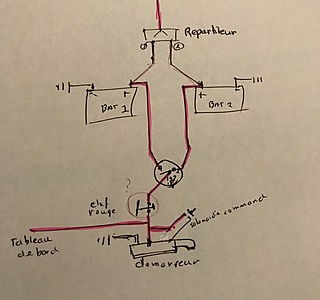 Repartiteur
BAT 1
BAT 2
?
elet
rouge
solnoide command
Tableau
de bord
demarreur